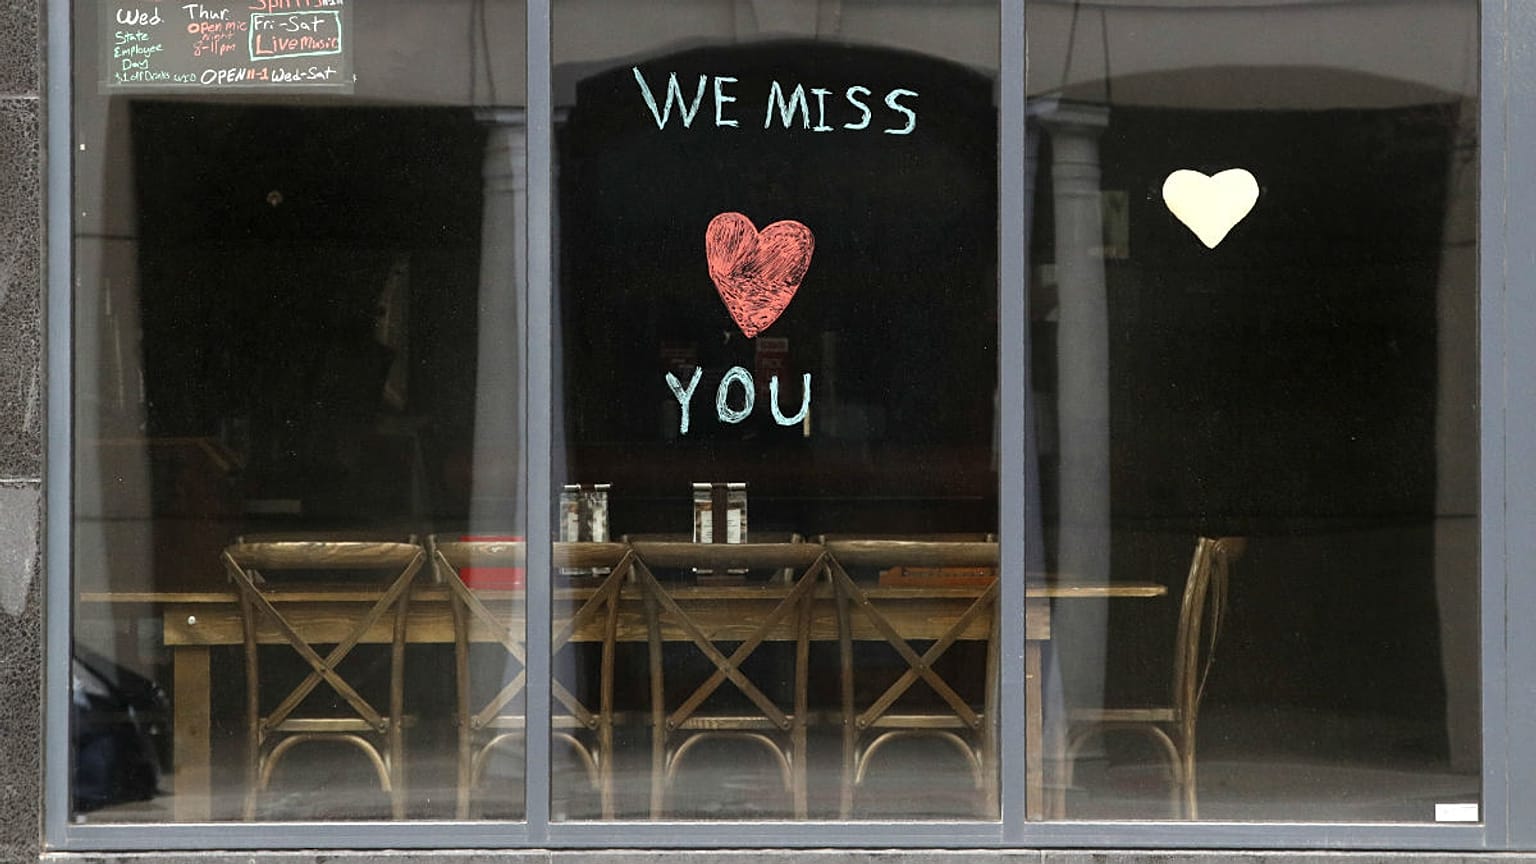 Wed. Thur.
State
Employee
Day
$1 off Drinks
Open Mic
Night
8-11pm
Fri-Sat
Live Music
OPEN 11-1 Wed-Sat
WE MISS
YOU